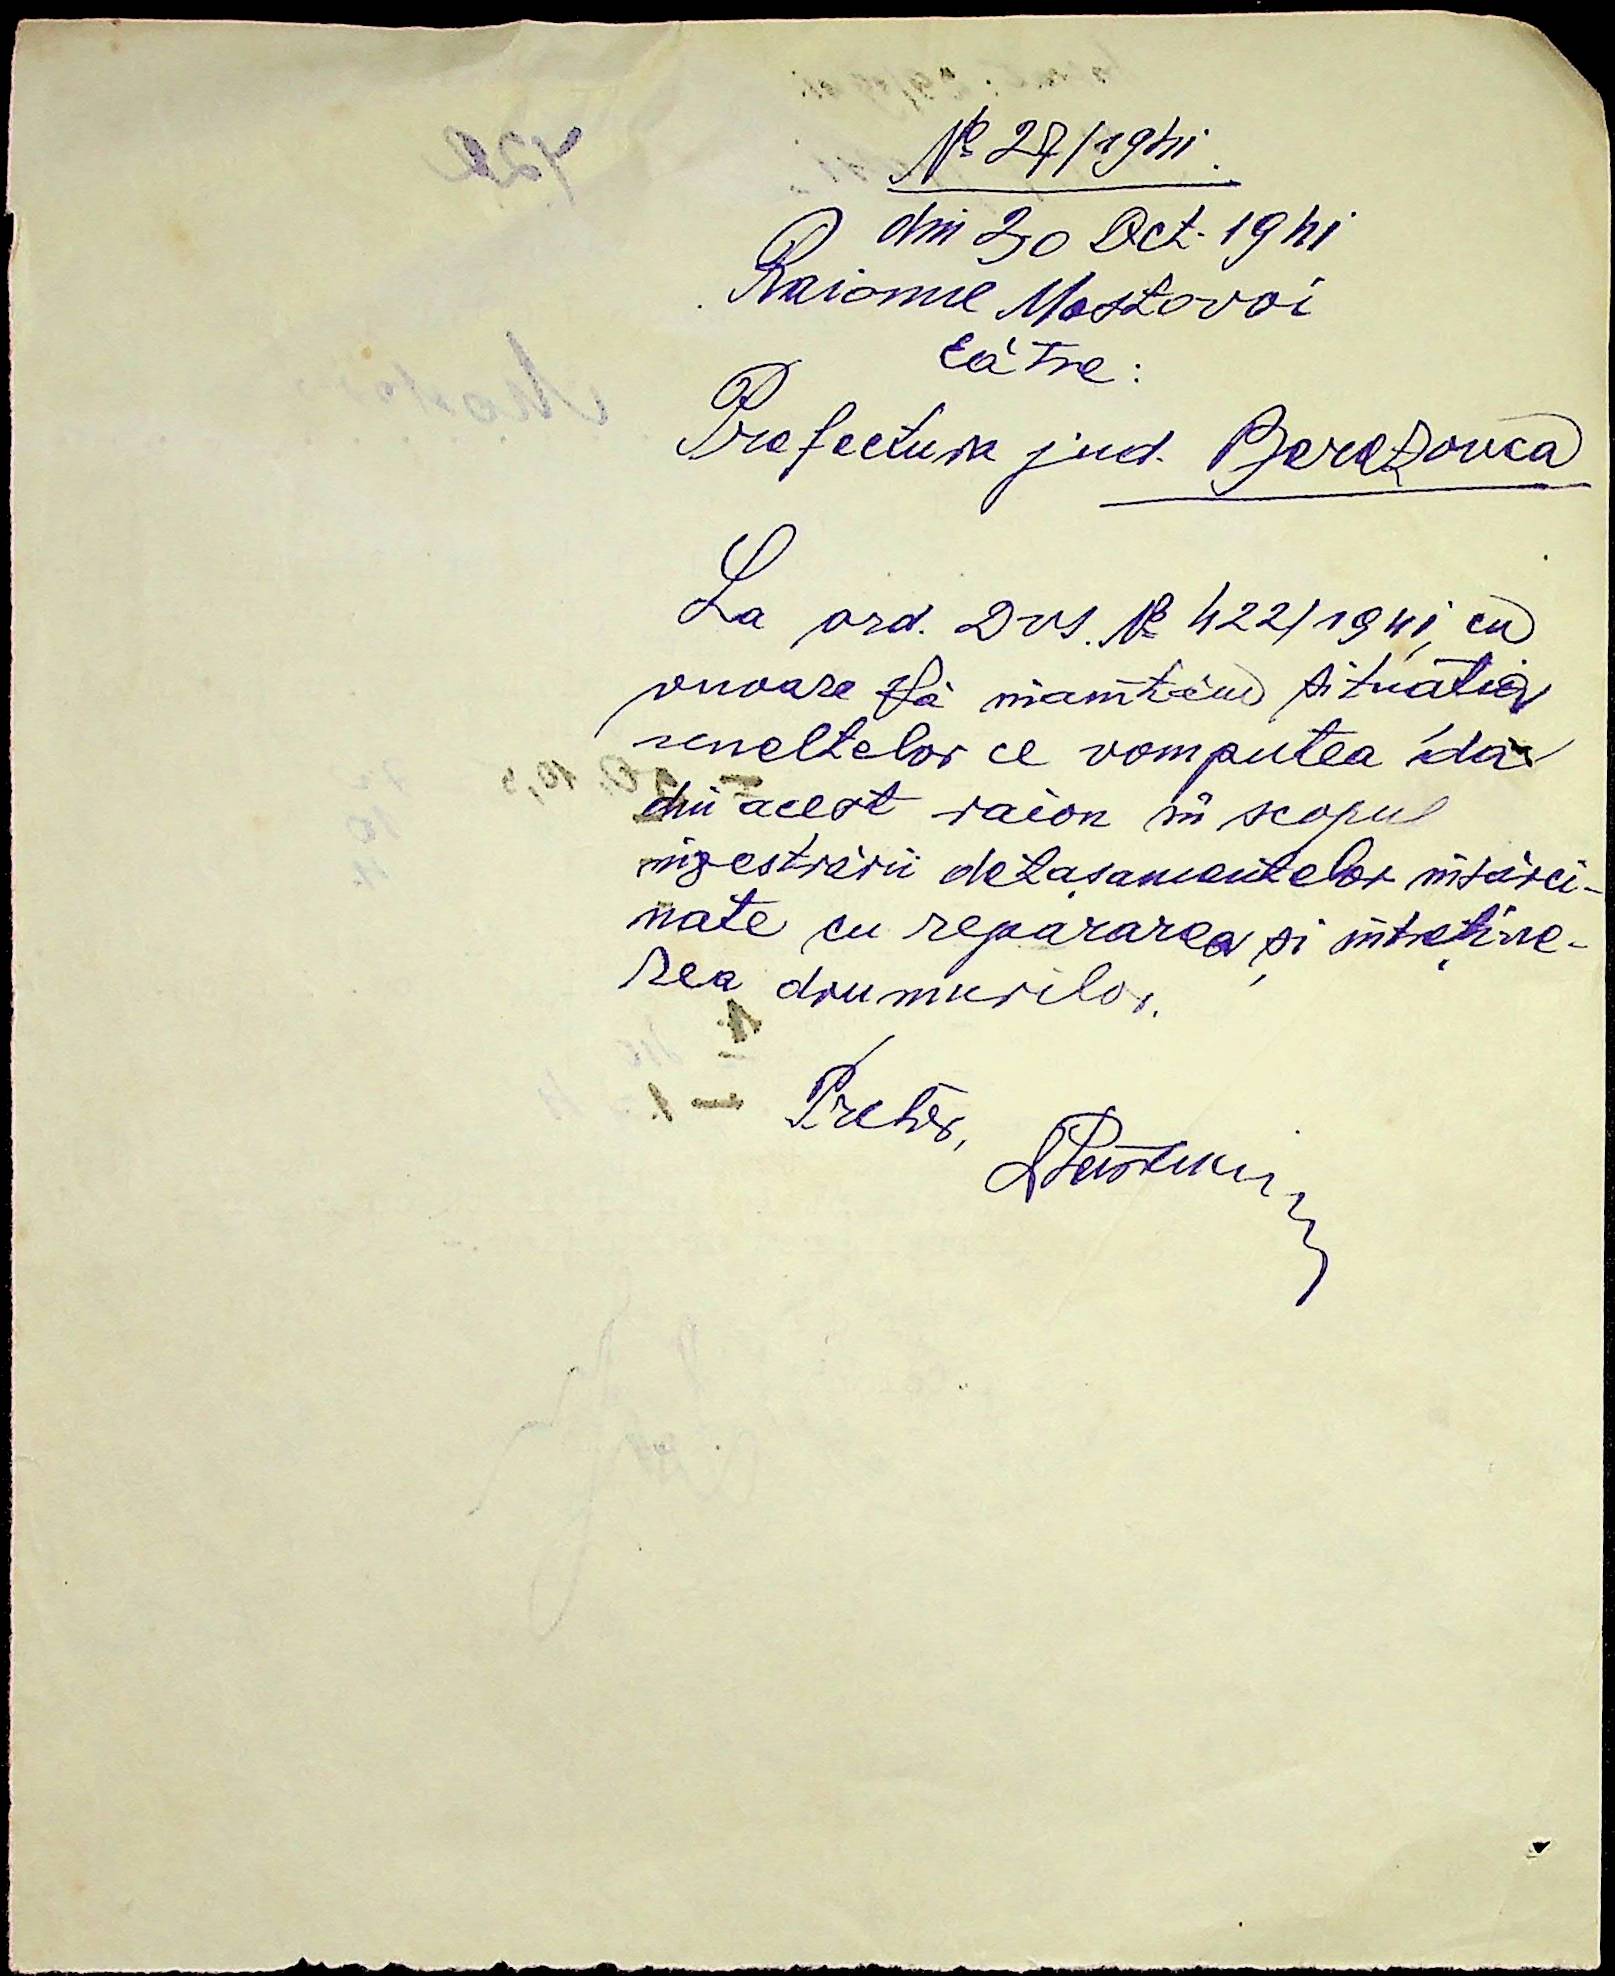 № 27/1941.
din 30 Oct. 1941
Raionul Mostovoi
către:
Prefectura jud. Berezovca
La ord. Dvs. № 422/1941, cu
onoare să înaintăm situația
uneltelor ce vom putea da
din acest raion în scopul
inzestrării detașamentelor însărci-
nate cu repararea și întreține-
rea drumurilor.
Pretor,